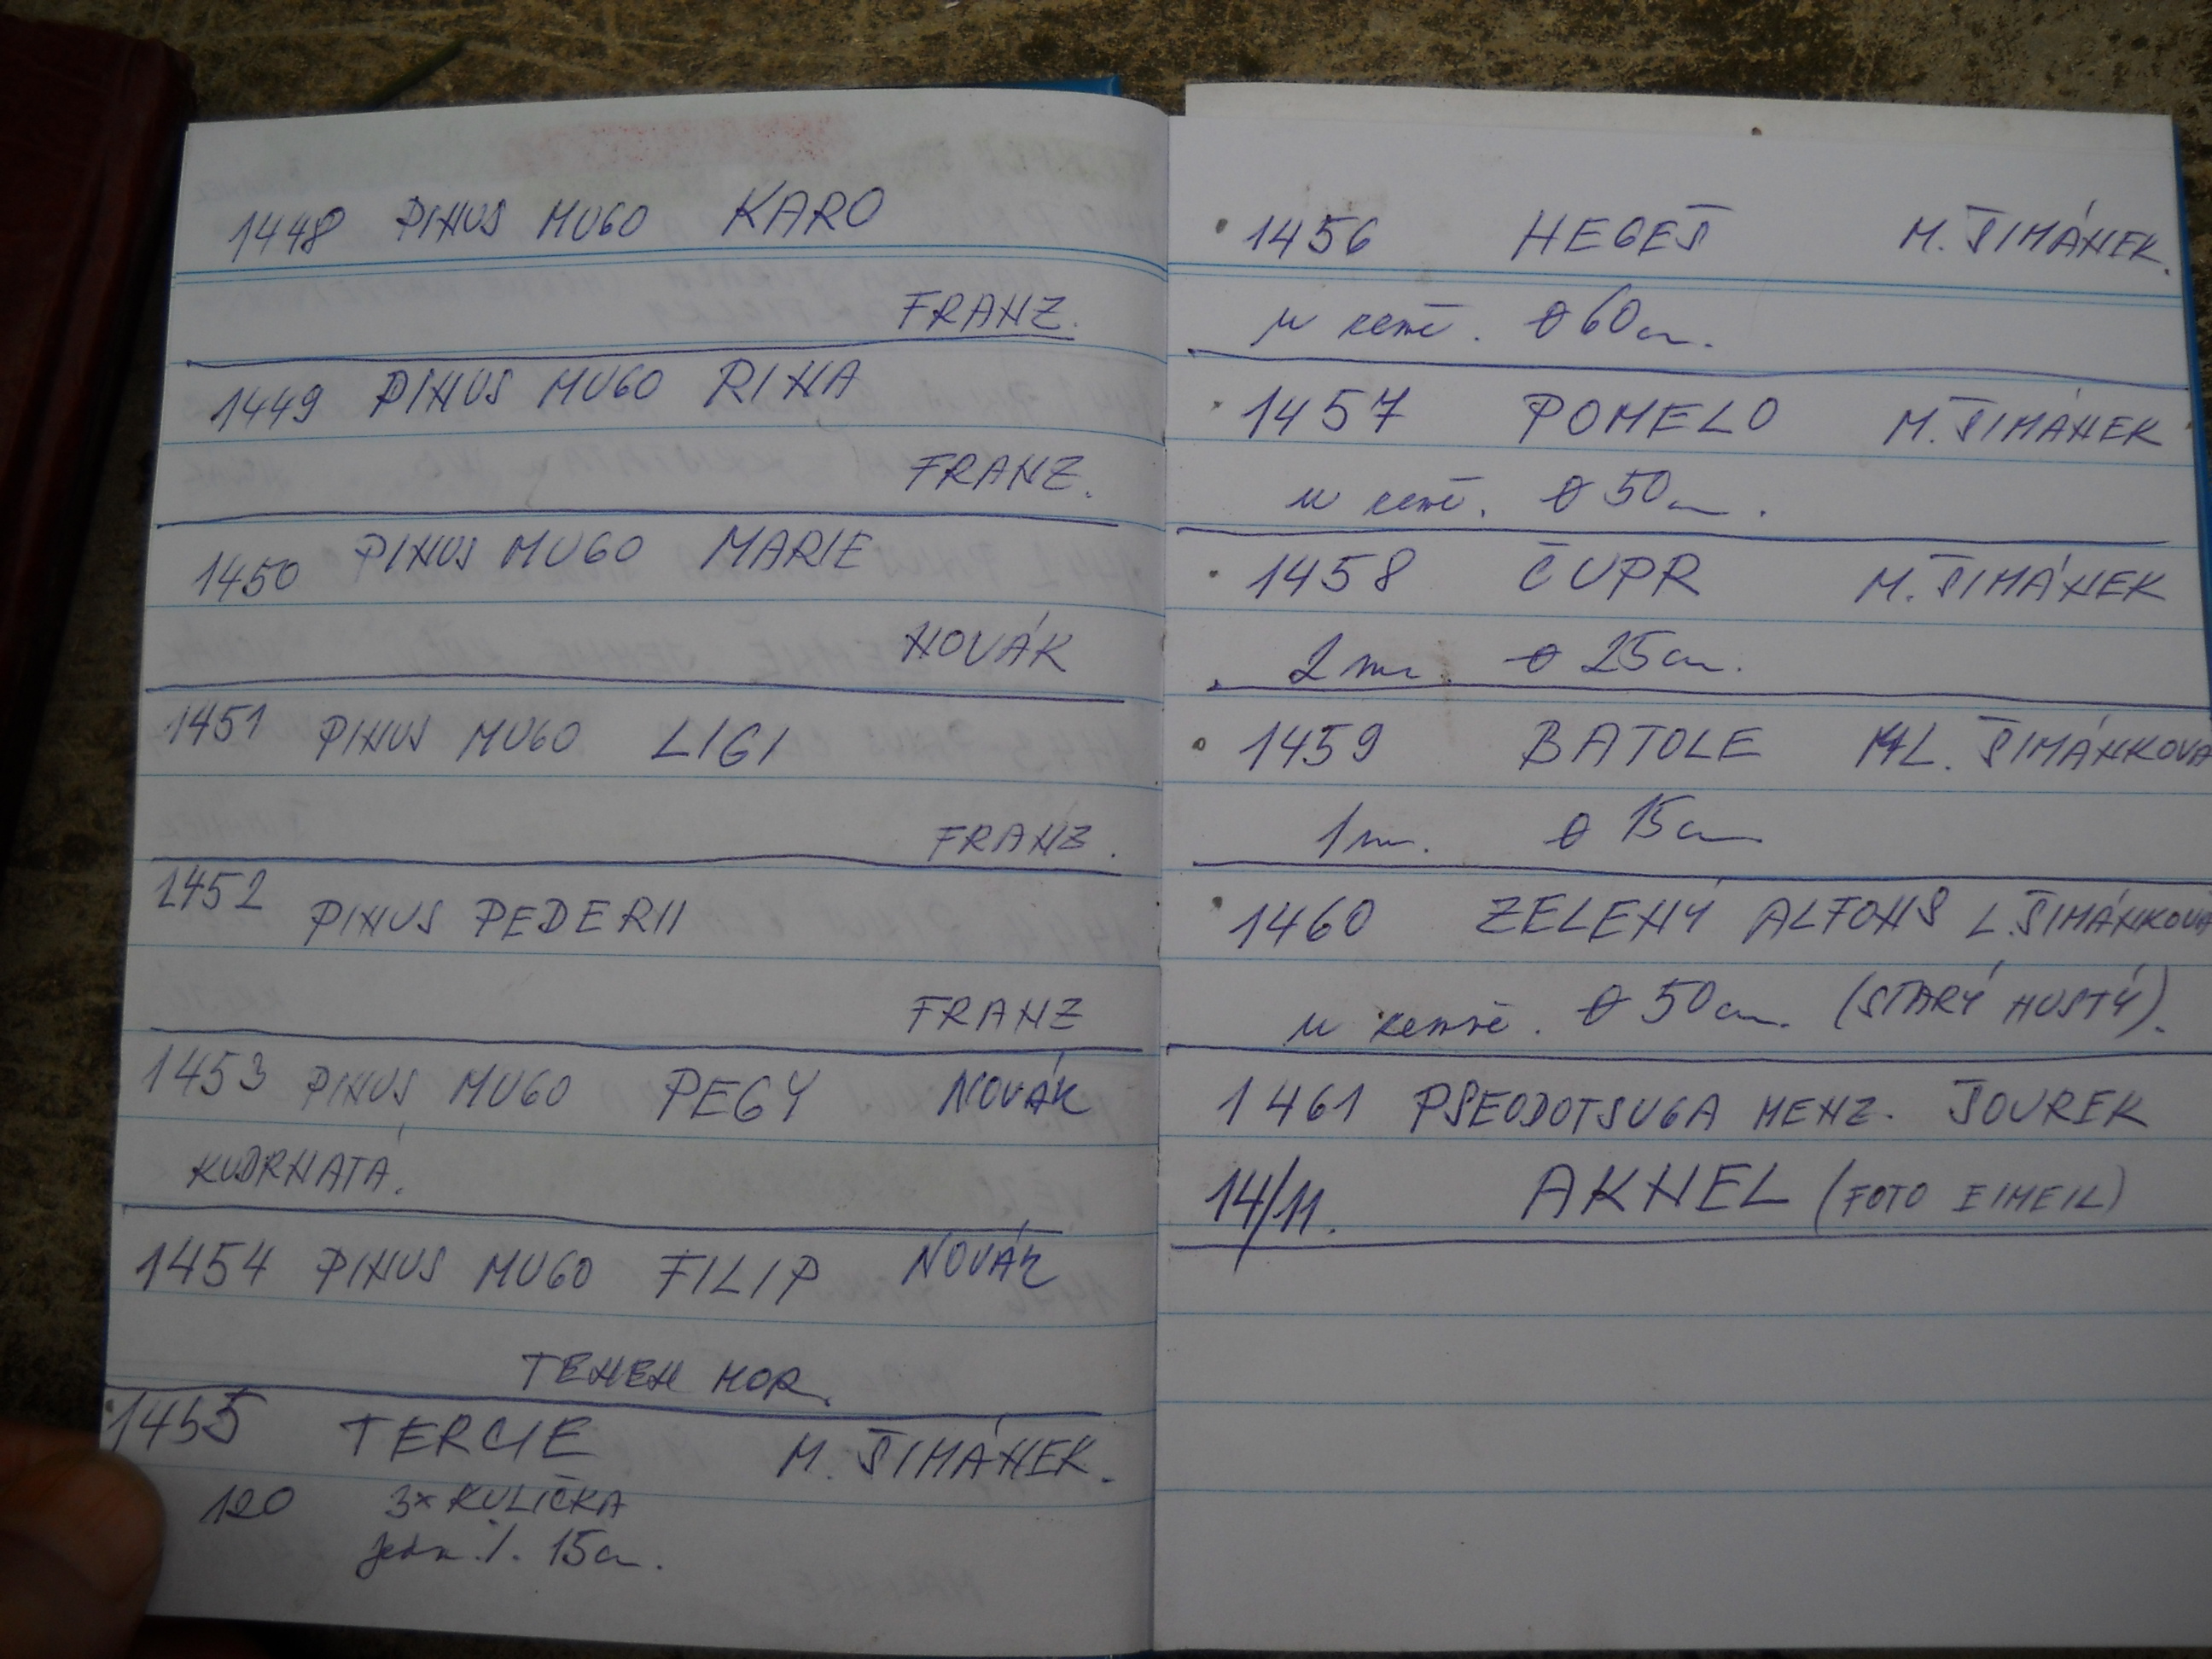 1448 PINUS MUGO KARO
FRANZ.
1449 PINUS MUGO RINA
FRANZ.
1450 PINUS MUGO MARIE
NOVÁK
1451 PINUS MUGO LIGI
FRANZ.
1452 PINUS PEDERII
FRANZ
1453 PINUS MUGO PEGY NOVÁK
KUDRNATÁ.
1454 PINUS MUGO FILIP NOVÁK
TENEN MOR.
1455 TERCIE M. ŠIMÁNEK.
120 3x KULIČKA
jedn. 1. 15cm.
1456 HEGEŠ M. ŠIMÁNEK.
u země. ø 60cm.
1457 POMELO M. ŠIMÁNEK
u země. ø 50cm.
1458 ČUPR M. ŠIMÁNEK
2 m. ø 25cm.
1459 BATOLE ML. ŠIMÁNKOVA
1m. ø 15cm
1460 ZELENÝ ALFONS L. ŠIMÁNKOVÁ
u země. ø 50cm. (STARÝ HUSTÝ).
1461 PSEODOTSUGA MENZ. JOUREK
14/11. AKNEL (FOTO EIMEIL)